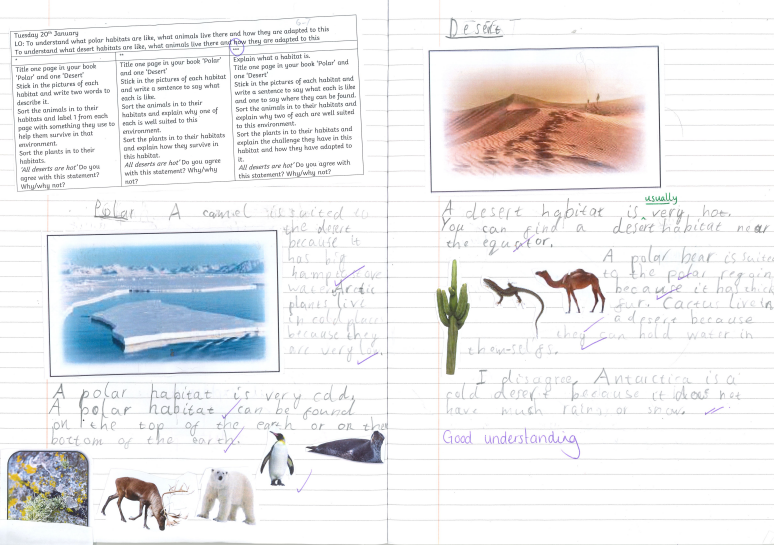 Tuesday 20th January
LO: To understand what polar habitats are like, what animals live there and how they are adapted to this
To understand what desert habitats are like, what animals live there and how they are adapted to this
*
Title one page in your book
'Polar' and one 'Desert'
Stick in the pictures of each
habitat and write two words to
describe it.
Sort the animals in to their
habitats and label 1 from each
page with something they use to
help them survive in that
environment.
Sort the plants in to their
habitats.
'All deserts are hot' Do you
agree with this statement?
Why/why not?
**
Title one page in your book 'Polar'
and one 'Desert'
Stick in the pictures of each habitat
and write a sentence to say what
each is like.
Sort the animals in to their
habitats and explain why one of
each is well suited to this
environment.
Sort the plants in to their habitats
and explain how they survive in
this habitat.
All deserts are hot' Do you agree
with this statement? Why/why
not?
***
Explain what a habitat is.
Title one page in your book 'Polar' and
one 'Desert'
Stick in the pictures of each habitat and
write a sentence to say what each is like
and one to say where they can be found.
Sort the animals in to their habitats and
explain why two of each are well suited
to this environment.
Sort the plants in to their habitats and
explain the challenge they have in this
habitat and how they have adapted to
it.
All deserts are hot' Do you agree with
this statement? Why/why not?
Polar
A camel is suited to
the desert
because it
has big
water. Arctic
plants live
in cold places
because they
are very
A polar habitat is very cold,
A polar habitat can be found
on the top of the earth or on the
bottom of the earth.
Desert
usually
A desert habitat is very hot.
You can find a desert habitat near
the equator.
A polar bear is suited
to the polar
because it has thick
fur. Cactus live in
a desert because
they can hold water in
themselfs.
I disagree, Antarctica is a
cold desert because it does not
have much rain, or snow.
Good understanding